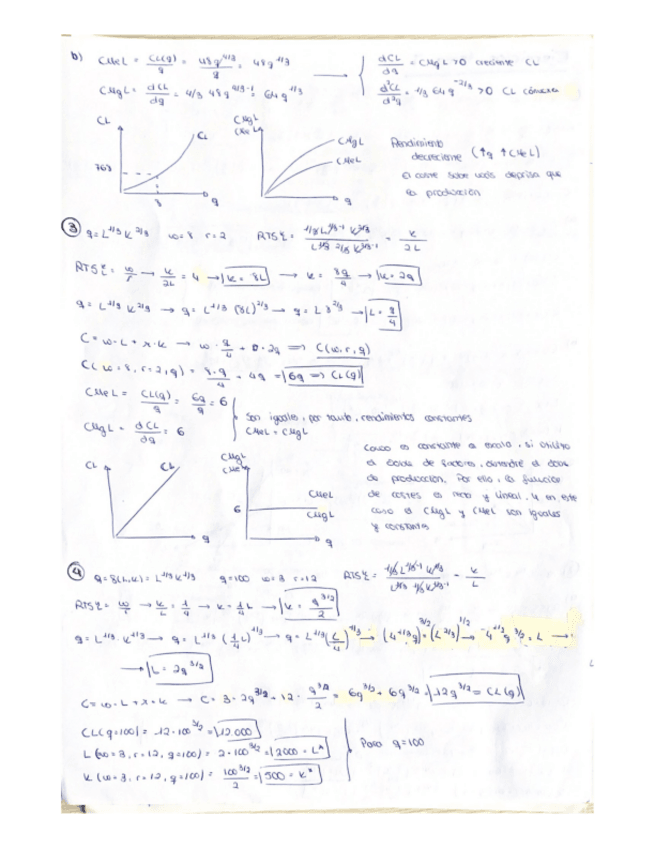 b) CMeL = CL(q)/q = 48q^4/3/q = 48q^1/3
CMgL = dCL/dq = 4/3 48q^4/3-1 = 64q^1/3
dCL/dq = CMgL > 0 creciente CL
d²CL/d²q = 1/3 64q^-2/3 > 0 CL convexa
CL
CL
768
8
q
CMgL
CMeL
CMgL
CMeL
q
Rendimiento
decreciente (↑q ↑CMeL)
El coste sube más deprisa que
la producción
③ q = L^1/3 K^2/3 w=8 r=2 RTS = K/2L
RTS = w/r → K/2L = 4 → K = 8L → K = 8q/4 → K = 2q
q = L^1/3 K^2/3 → q = L^1/3 (8L)^2/3 → q = L 8^2/3 → L = q/4
C = w·L + r·K → w · q/4 + r·2q ⟹ C(w,r,q)
C(w=8, r=2, q) = 8·q/4 + 4q = 6q ⟹ CL(q)
CMeL = CL(q)/q = 6q/q = 6
CMgL = dCL/dq = 6
Son iguales, por tanto, rendimientos constantes
CMeL = CMgL
CL
CL
q
CMgL
CMeL
6
CMeL
CMgL
q
Como es constante a escala, si utilizo
el doble de factores, obtendré el doble
de producción. Por ello, la función
de costes es recta y lineal, y en este
caso el CMgL y CMeL son iguales
y constantes
④ q = f(L,K) = L^1/3 K^1/3 q=100 w=3 r=12 RTS = K/L
RTS = w/r → K/L = 1/4 → K = 1/4 L → K = q^3/2/2
q = L^1/3 · K^1/3 → q = L^1/3 (1/4 L)^1/3 → q = L^1/3 (L/4)^1/3 → (4^1/3 q)^3/2 = (L^2/3)^3/2 → 4^1/2 q^3/2 = L →
→ L = 2q^3/2
C = w·L + r·K → C = 3·2q^3/2 + 12 · q^3/2/2 = 6q^3/2 + 6q^3/2 = 12q^3/2 = CL(q)
CL(q=100) = 12·100^3/2 = 12.000
L(w=3, r=12, q=100) = 2·100^3/2 = 2000 = L*
K(w=3, r=12, q=100) = 100^3/2/2 = 500 = K*
Para q=100